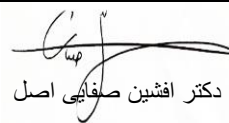 دکتر افشین صفایی اصل